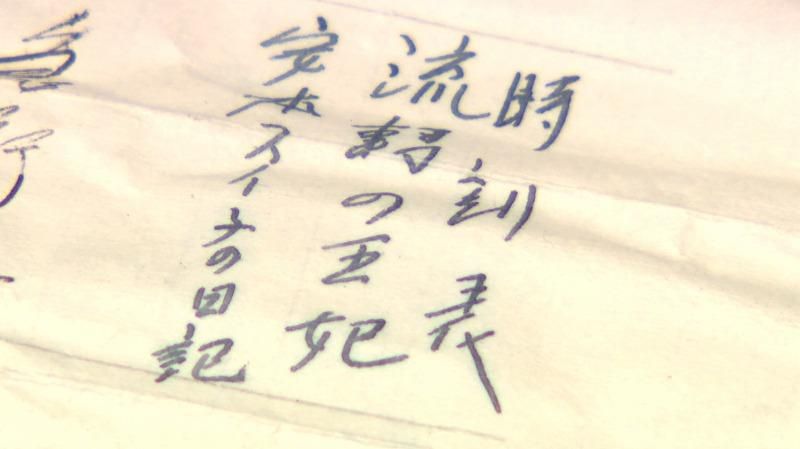 時刻表
流転の王妃
安木スイ子の日記